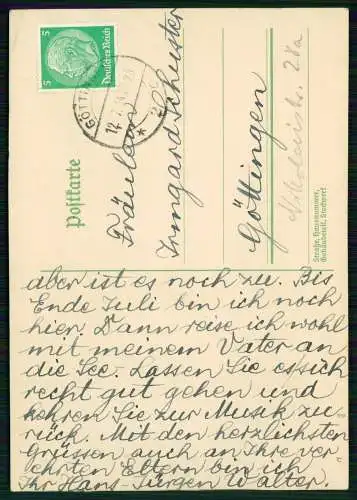 5 Deutsches Reich 5
GÖTTI
12.7.3
Postkarte
Fräulein
Irmgard Schuster
Göttingen
Nikolaistr. 28a
Straße, Hausnummer,
Gebäudeteil, Stockwerk
aber ist es noch zu. Bis
Ende Juli bin ich noch
hier. Dann reise ich wohl
mit meinem Vater an
die See. Lassen Sie es sich
recht gut gehen und
kehren Sie zur Musik zu-
rück. Mit den herzlichsten
Grüssen auch an Ihre ver-
ehrten Eltern bin ich
Ihr Hans-Jürgen Walter.